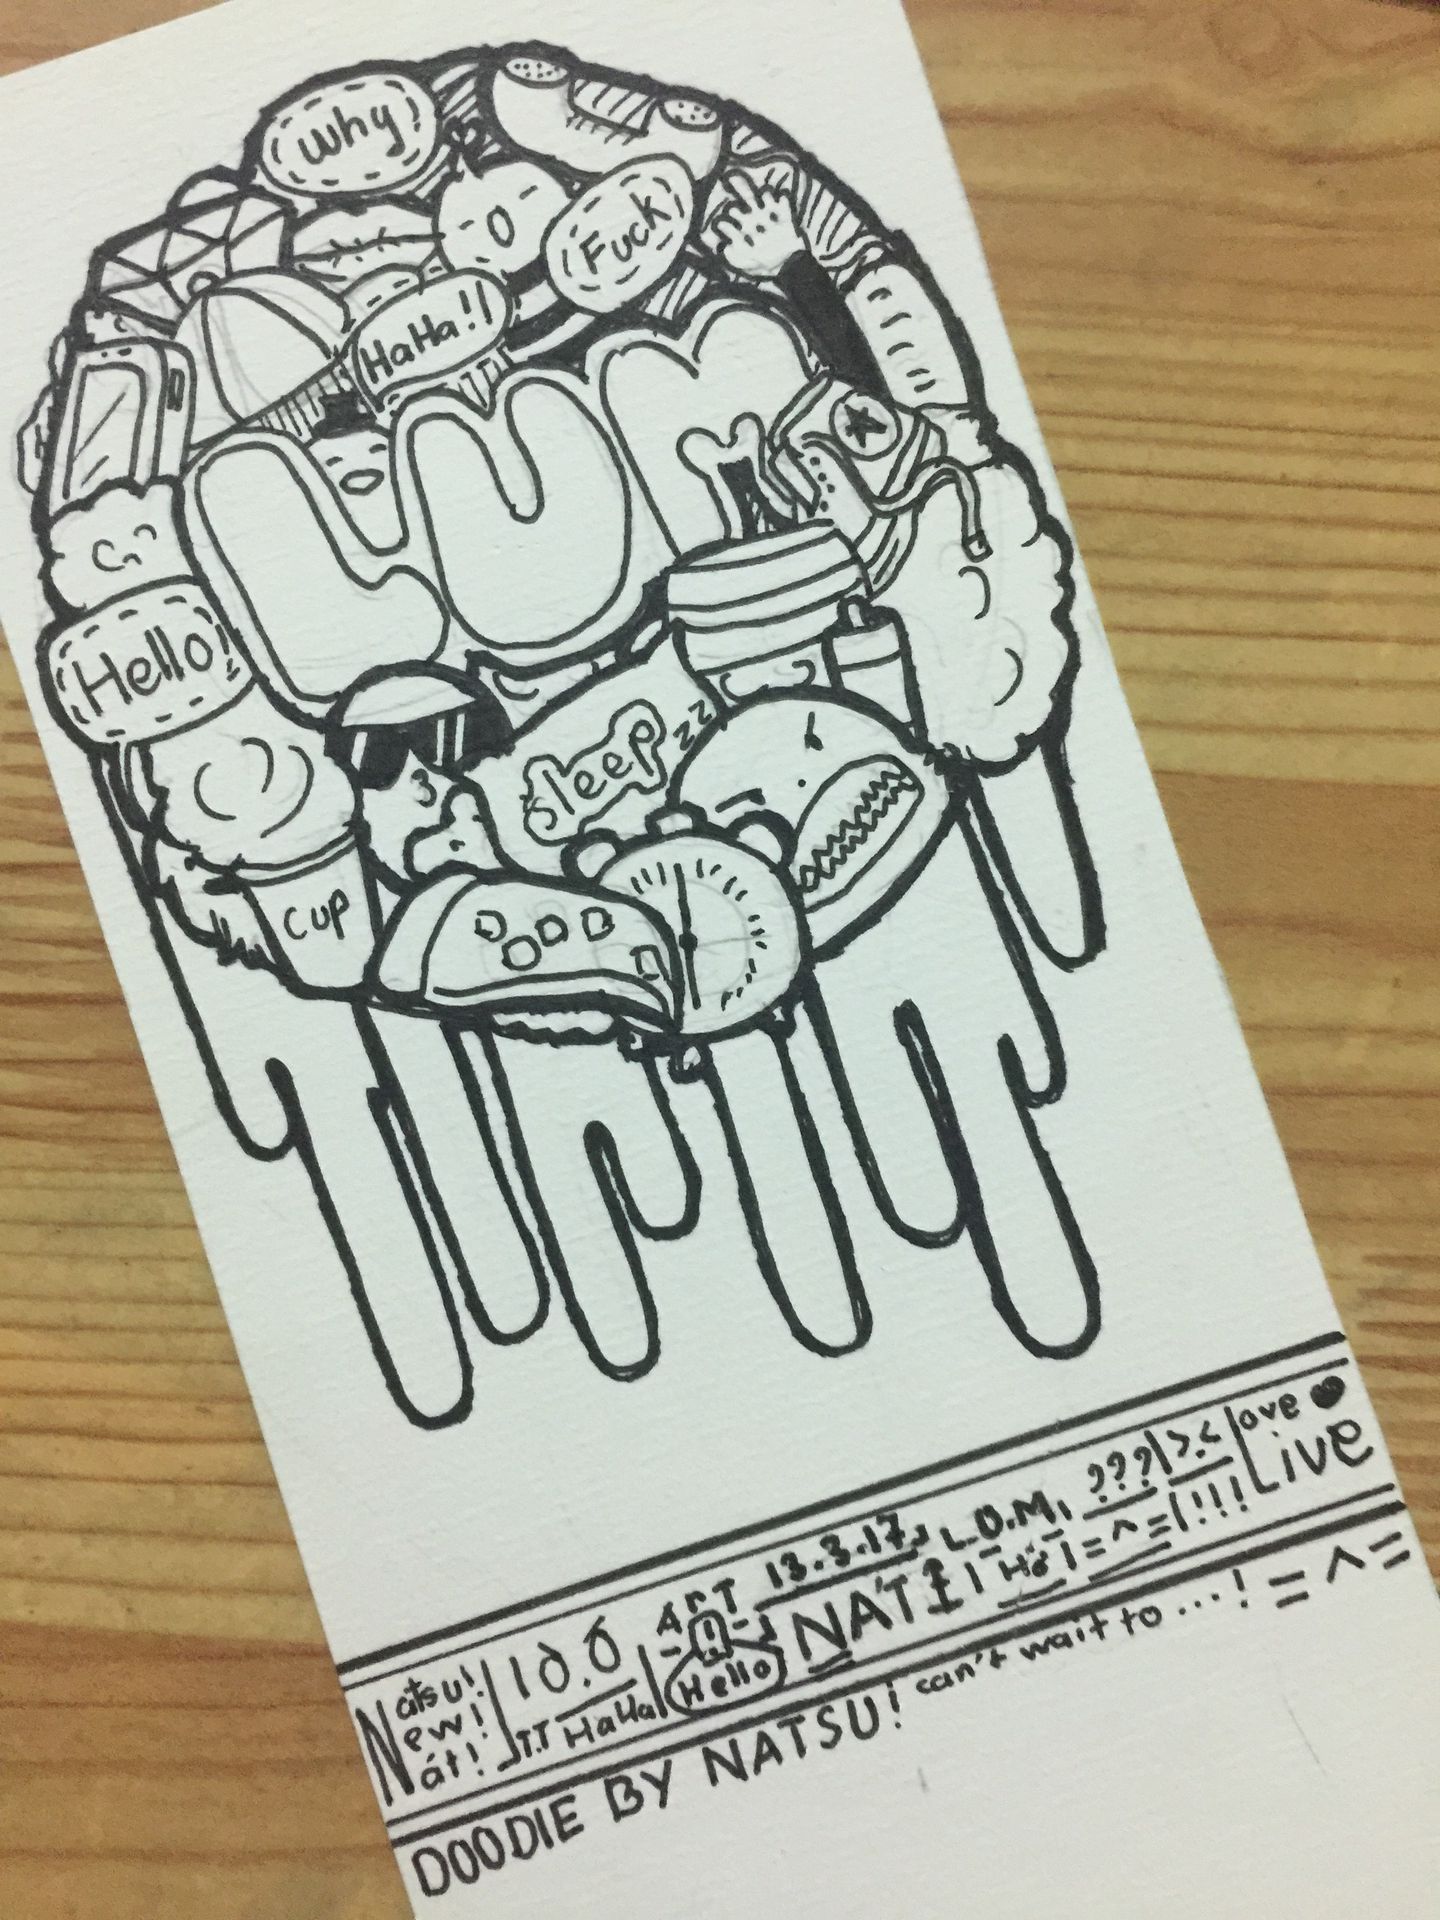 why
Fuck
HaHa!!
LUM
Hello!
sleep zz
3
Cup
Natsu! New! Nát!
10.0
T.T HaHa
ART
Hello
13.3.17
NATI
L.O.M
Hố
=^=
???
!!!
>.<
Love
Live
DOODIE BY NATSU! can't wait to ...! =^=